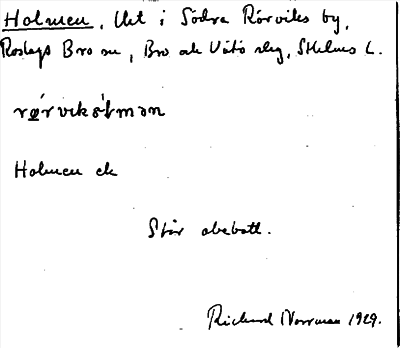 Holmen, Utä i Södra Rörviks by,
Roslags Bro sn, Bro ock Vätö slg, Sthlms L.
Holmen ek
Står obebott.
Rickard Norrman 1929.